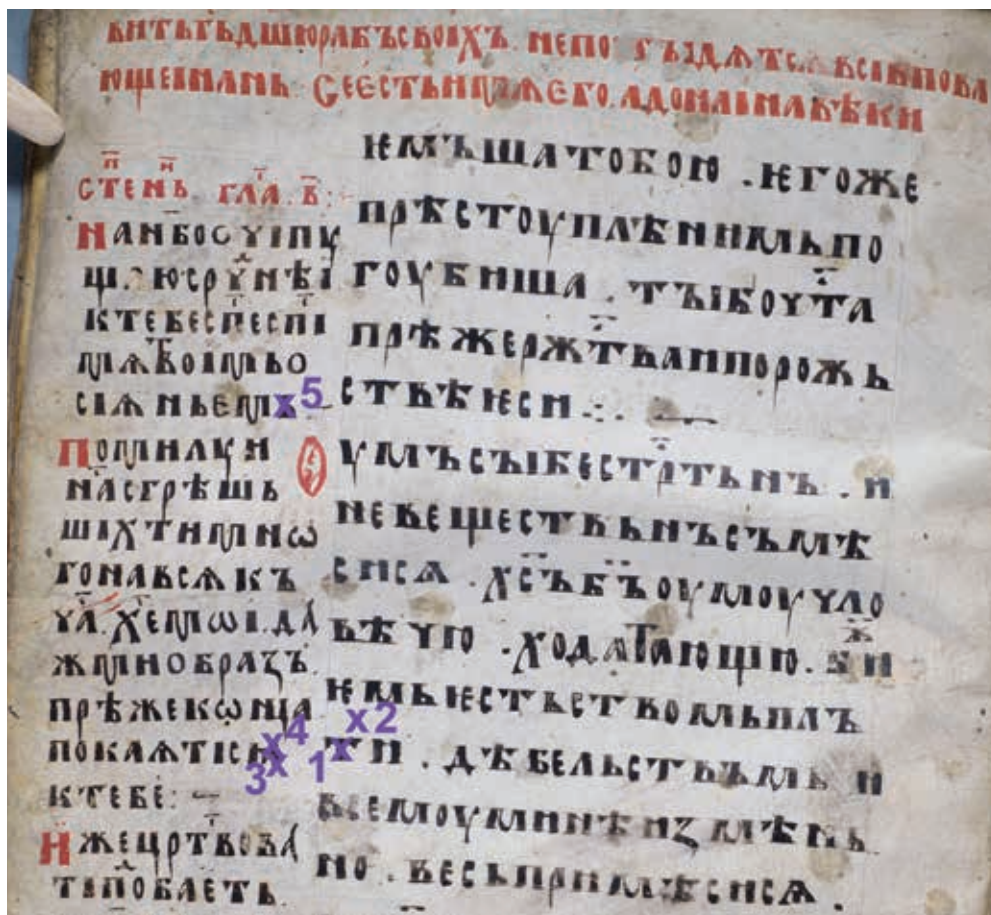 вить гь дшю рабъ своіхъ. не по гъідѧтсѧ всі ѹпова
ющеі на нь. Се єсть имѧ єго. адонаі на вѣки
п н
стенъ гла. в:-
На нбо сѹ іпу
к тебе спсе спі
мѧ твоімь о
сіѧньемъ
x 5
Помилуи
нас сгрѣшь
шіх ти мнѡ
го на всѧкъ
ча. хе мѡі. да
жмі ми образъ
прѣже кѡнца
покаѧтісѧ
x 4
3 x
к тебе:
Иже цртвова
ті побаеть
ѥмъша тобою. ѥгоже
прѣстоуплѣниѥмь по
гоубиша. тъі бо у та
прѣже ржтва и по рожь
ствѣ ѥси.:.
Оумъ съі бестртьнъ. и
невещьствьнъ съмѣ
сисѧ. хсъ бъ оумоу чло
вѣчю. ходатающю. бжи
ѥмь ѥстьствомь плъ
x 2
1 x
ти. дѣбельствъмь и
всемоу ми неизмѣнь
но. весь примѣсисѧ.